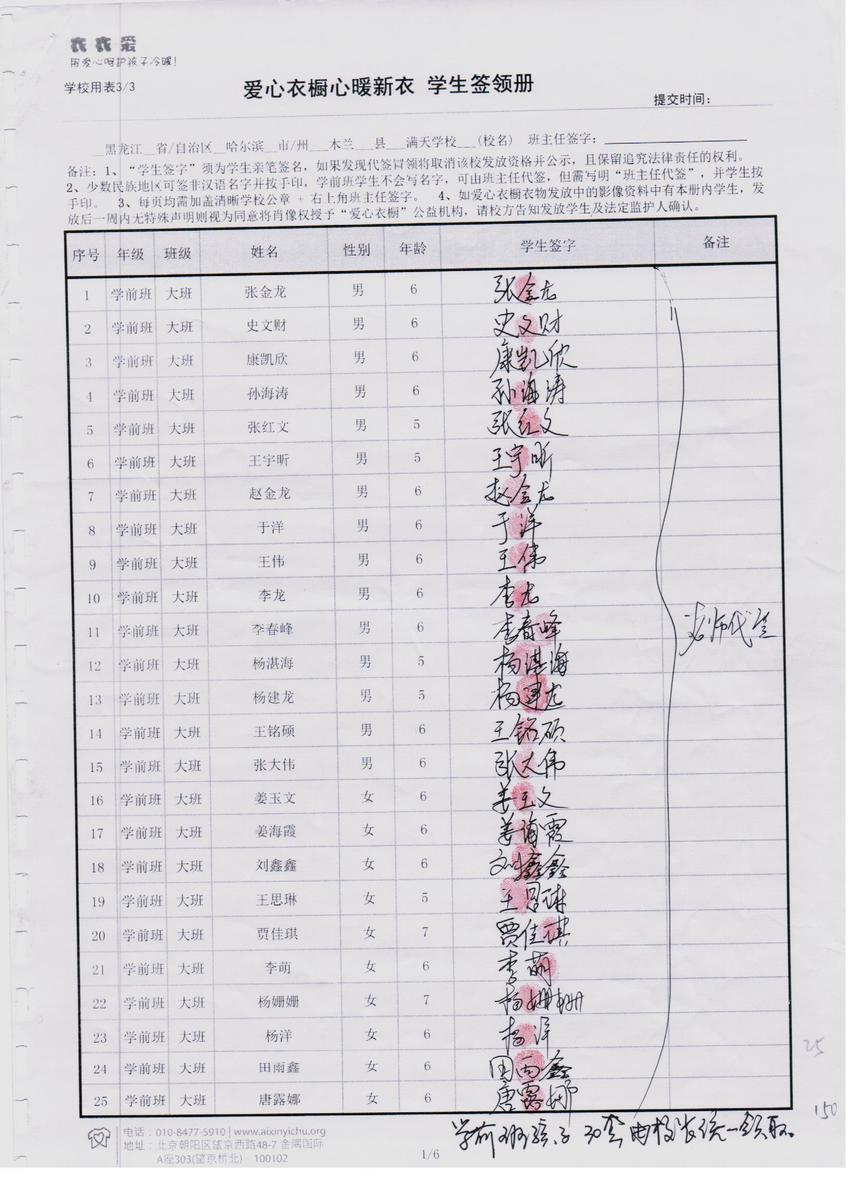 衣衣爱
用爱心呵护孩子冷暖!
学校用表3/3
爱心衣橱心暖新衣 学生签领册
提交时间:
__黑龙江__省/自治区__哈尔滨__市/州___木兰___县___满天学校___(校名) 班主任签字:
备注:1、“学生签字”须为学生亲笔签名,如果发现代签冒领将取消该校发放资格并公示,且保留追究法律责任的权利。
2、少数民族地区可签非汉语名字并按手印,学前班学生不会写名字,可由班主任代签,但需写明“班主任代签”,并学生按
手印。 3、每页均需加盖清晰学校公章 + 右上角班主任签字。 4、如爱心衣橱衣物发放中的影像资料中有本册内学生,发
放后一周内无特殊声明则视为同意将肖像权授予“爱心衣橱”公益机构,请校方告知发放学生及法定监护人确认。
序号 年级 班级 姓名 性别 年龄 学生签字 备注
1 学前班 大班 张金龙 男 6 张金龙
2 学前班 大班 史文财 男 6 史文财
3 学前班 大班 康凯欣 男 6 康凯欣
4 学前班 大班 孙海涛 男 6 孙海涛
5 学前班 大班 张红文 男 5 张红文
6 学前班 大班 王宇昕 男 5 王宇昕
7 学前班 大班 赵金龙 男 6 赵金龙
8 学前班 大班 于洋 男 6 于洋
9 学前班 大班 王伟 男 6 王伟
10 学前班 大班 李龙 男 6 李龙
11 学前班 大班 李春峰 男 6 李春峰 老师代签
12 学前班 大班 杨湛海 男 5 杨湛海
13 学前班 大班 杨建龙 男 5 杨建龙
14 学前班 大班 王铭硕 男 6 王铭硕
15 学前班 大班 张大伟 男 6 张大伟
16 学前班 大班 姜玉文 女 6 姜玉文
17 学前班 大班 姜海霞 女 6 姜海霞
18 学前班 大班 刘鑫鑫 女 6 刘鑫鑫
19 学前班 大班 王思琳 女 5 王思琳
20 学前班 大班 贾佳琪 女 7 贾佳琪
21 学前班 大班 李萌 女 6 李萌
22 学前班 大班 杨姗姗 女 7 杨姗姗
23 学前班 大班 杨洋 女 6 杨洋
24 学前班 大班 田雨鑫 女 6 田雨鑫
25 学前班 大班 唐露娜 女 6 唐露娜
25
150
学前班孩子30套由校长统一领取。
电话:010-8477-5910 | www.aixinyichu.org
地址:北京朝阳区望京西路48-7 金隅国际
A座303(望京桥北) · 100102
1/6